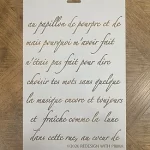 au papillon de pourpre et de
mais pourquoi m'avoir fait
n'étais pas fait pour dire
choisir tes mots sans quelque
la musique encore et toujours
et fraîche comme la lune
dans cette rue, au cœur de
REDESIGN WITH PRIMA